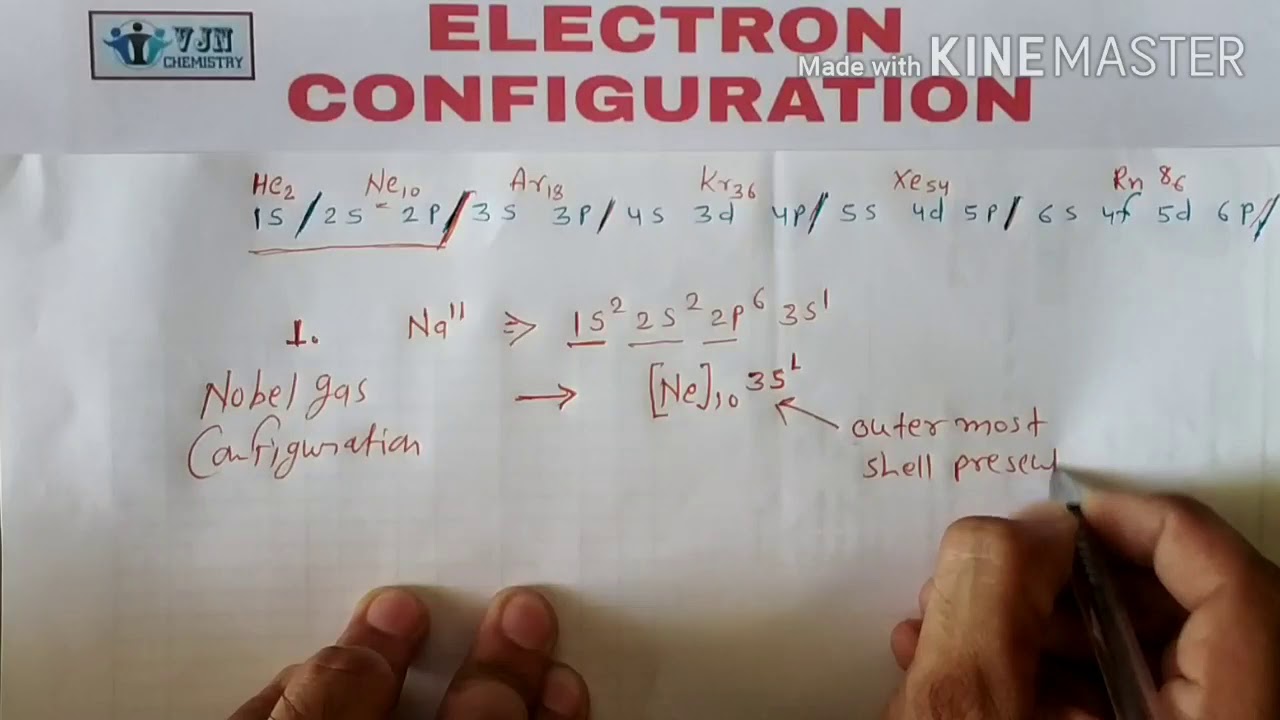 VJN
CHEMISTRY
ELECTRON
CONFIGURATION
Made with KINEMASTER
He₂ Ne₁₀ Ar₁₈ Kr₃₆ Xe₅₄ Rn 86
1S / 2S 2P / 3S 3P / 4S 3d 4P / 5S 4d 5P / 6S 4f 5d 6P /
1. Na¹¹ ⇒ 1S² 2S² 2P⁶ 3S¹
Nobel gas → [Ne]₁₀ 3S¹
Configuration
outermost
shell present